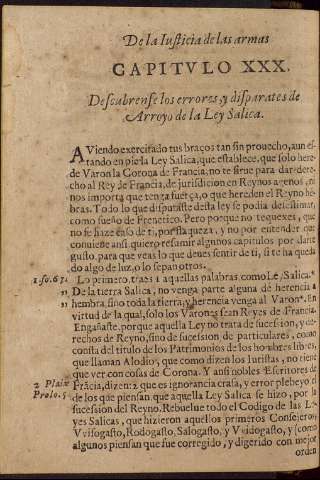 De la Iusticia de las armas
CAPITVLO XXX.
Descubrense los errores, y disparates de
Arroyo de la Ley Salica.
AViendo exercitado tus braços tan sin prouecho, aun es-
tando en pie la Ley Salica, que establece, que solo here-
de Varon la Corona de Francia, no te sirue para dar dere-
cho al Rey de Francia, de jurisdicion en Reynos agenos, ni
nos importa que tenga fuerça, o que hereden el Reyno he-
bras. Todo lo que disputaste desta ley se podia desestimar,
como sueño de Frenetico. Pero porque no te quexes, que
no se haze caso de ti, por flaqueza, y no por entender que
conuiene ansi, quiero resumir algunos capitulos por darte
gusto, para que veas lo que deues sentir de ti, si te ha queda
do algo de luz, o lo sepan otros.
1 so. 61. Lo primero, traes 1 aquellas palabras, como Lé, Salica.*
,, De la tierra Salica, no venga parte alguna de herencia a
,, hembra, sino toda la tierra, y herencia venga al Varon*. En
virtud de la qual, solo los Varones sean Reyes de Francia.
Engañaste, porque aquella Ley no trata de sucesion, y de-
rechos de Reyno, sino de sucession de particulares, como
consta del titulo de los Patrimonios de los hombres libres,
que llaman Alodios, que como dizen los Iuristas, no tiene
que ver con cosas de Corona. Y ansi nobles Escritores de
2 Plaix Frãcia, dizen: 2 que es ignorancia crasa, y error plebeyo el
Prolo. 5 de los que piensan que aquella Ley Salica se hizo, por la
sucession del Reyno. Rebuelue todo el Codigo de las Le
yes Salicas, que hizieron aquellos primeros Consejeros,
Vvisogasto, Rodogasto, Salogasto, y Vvidogasto, y (como
algunos piensan que fue corregido, y digerido con mejor
orden